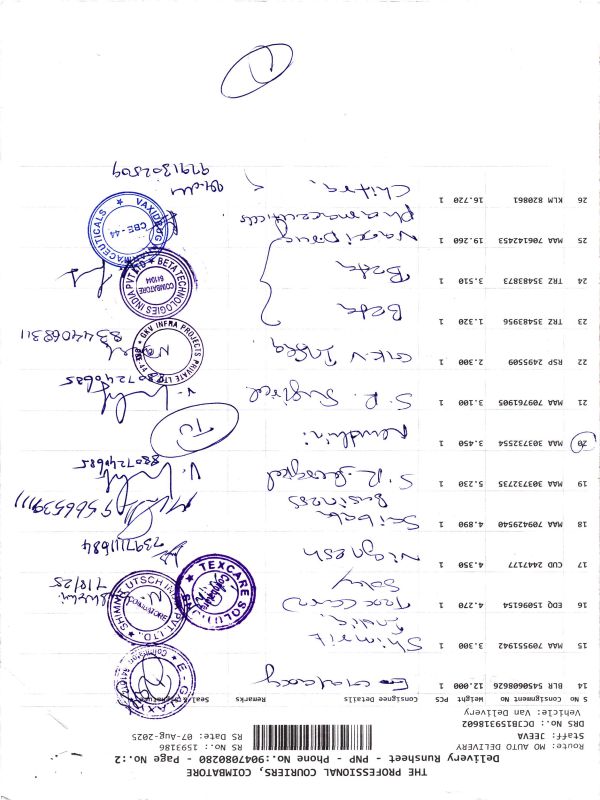 THE PROFESSIONAL COURIERS, COIMBATORE
Delivery Runsheet - PNP - Phone No.:9047080280 - Page No.:2
Route: MO AUTO DELIVERY
Staff: JEEVA
RS No.: 1593186
DRS No.: DCJB1593186O2
RS Date: 07-Aug-2025
Vehicle: Van Delivery
S No Consignment No Weight PCS Consignee Details Remarks
14 BLR 5450608628 12.000 1 E-Galaxy
15 MAA 709551942 3.300 1 Shimrit India
16 EDQ 15096154 4.270 1 Texcare Solu
SHIMRIT UTSCH INDIA PVT LTD. COIMBATORE
TEXCARE SOLUTIONS Coimbatore
7/8/25
17 CUD 2447177 4.350 1 Vignesh
7397111684
18 MAA 709429540 4.890 1 Saibaba Business
9566539111
19 MAA 303732735 5.230 1 S.R. Surgical
8807240685
20 MAA 303732554 3.450 1 Nandhini
21 MAA 709761905 3.100 1 S.R. Surgical
8807240685
22 RSP 2495509 2.300 1 GKV Infra
GKV INFRA PROJECTS PRIVATE LTD
8344068311
23 TRZ 3548356 1.320 1 Beta
24 TRZ 35483873 3.510 1 Beta
BETA TECHNOLOGIES INDIA PVT LTD COIMBATORE 641044
25 MAA 706142453 19.260 1 Vaxidrug Pharmaceuticals
VAXIDRUG PHARMACEUTICALS CBE-44
26 KLM 820861 16.720 1 Chitra,
9791302509
1